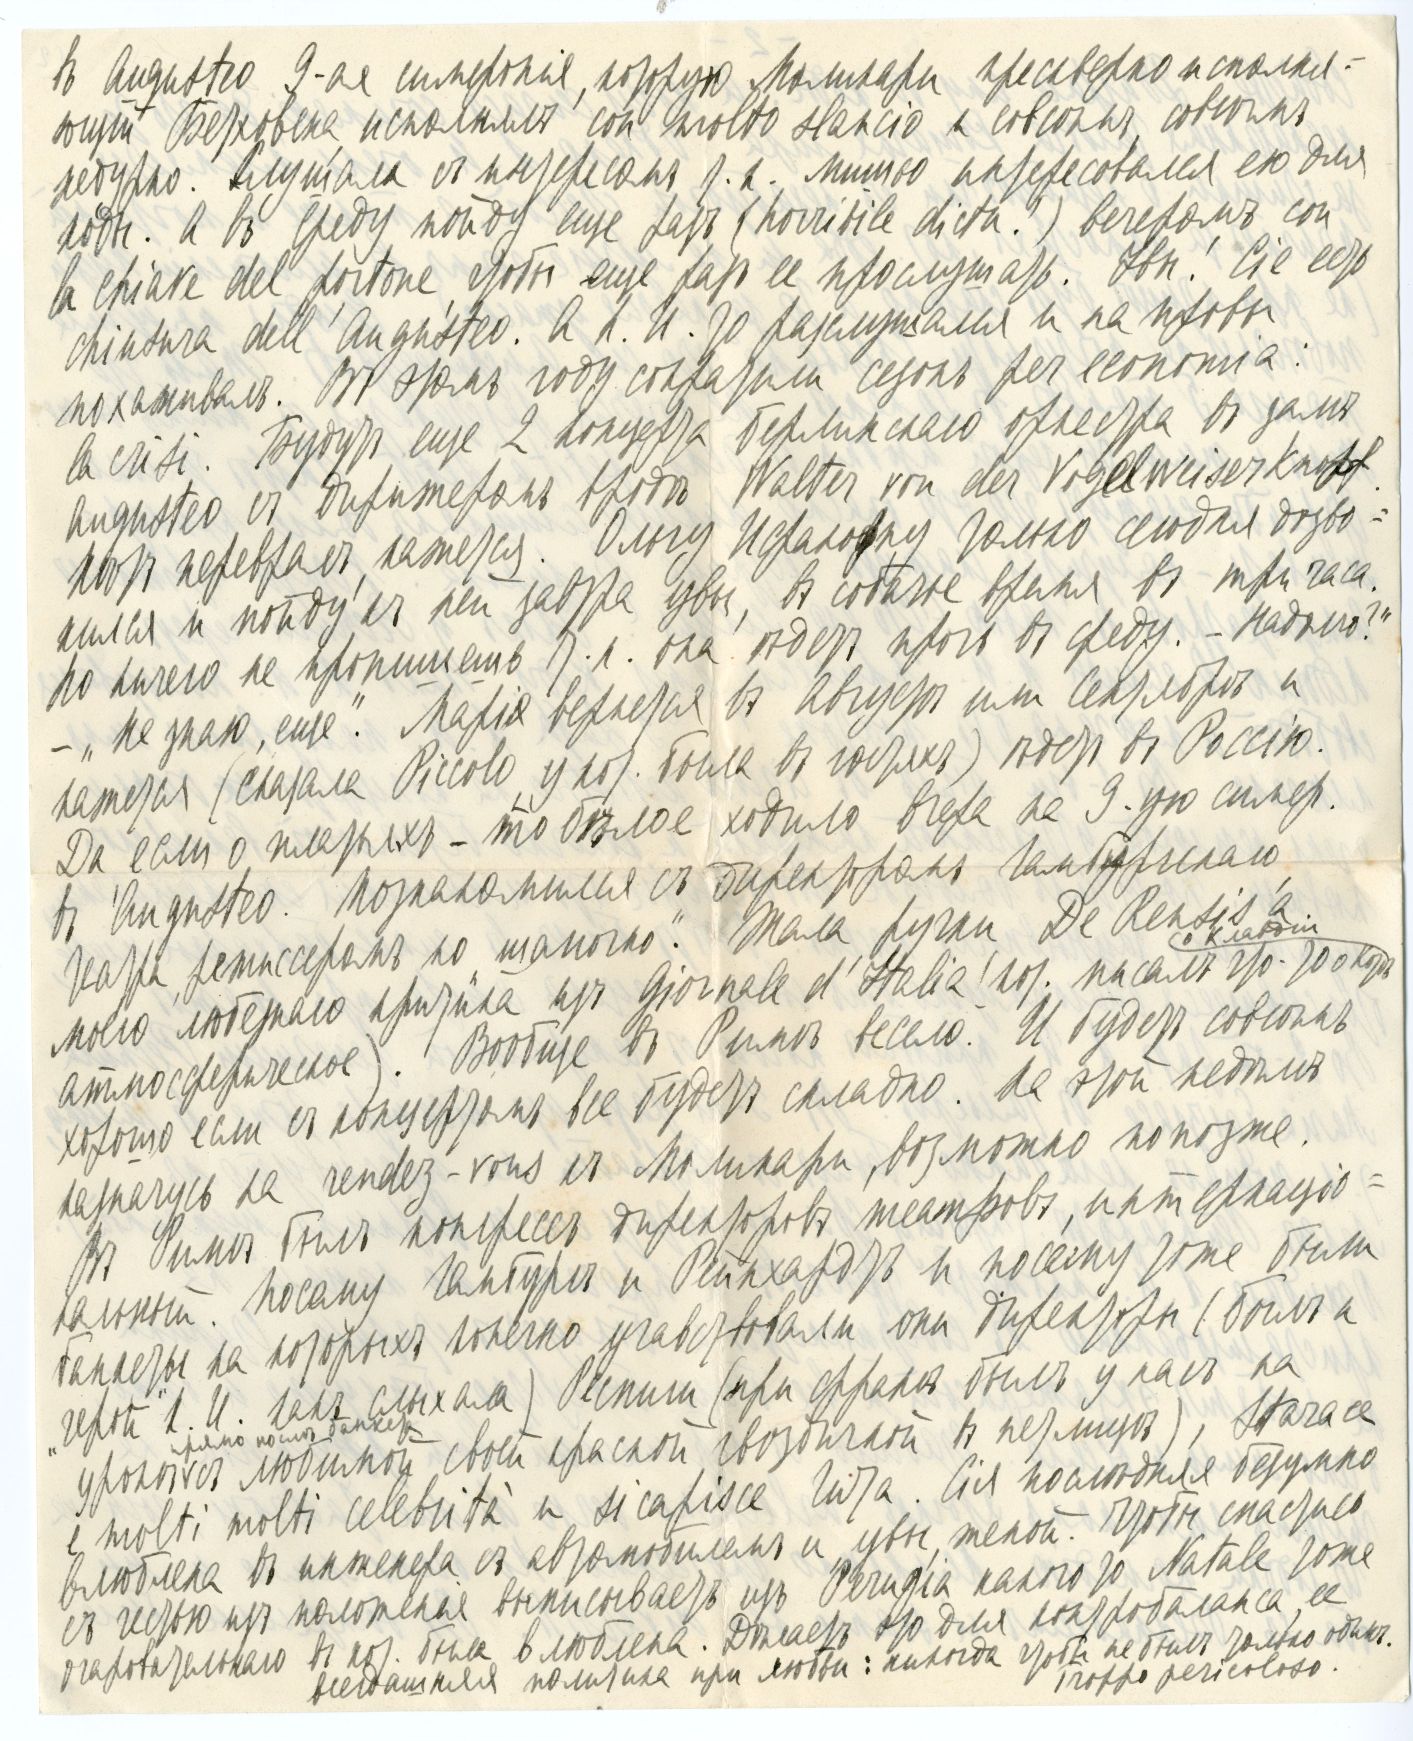 въ Augusteo 9-ая симфонія, которую Молинари прескверно исполня-
ющій Бетховена исполнилъ con molto slancio и совсѣмъ, совсѣмъ
недурно. Слушала съ интересомъ т.к. Мишю интересовался ею для
коды. А въ среду пойду еще разъ (horribile dictu!) вечеромъ con
la chiave del portone чтобы еще разъ ее прослушать. Увы! Сіе есть
chiusura dell'Augusteo. А К.И. то разслушался и на пробы
похаживалъ. Въ этомъ году сократили сезонъ per economia:
la crisi. Будутъ еще 2 концерта берлинскаго оркестра въ залѣ
Augusteo съ дирижеромъ вродѣ Walter von der Vogelweiser Knopf.
Можъ перевралъ, кажется. Ольгу только сегодня дозво-
нился и пойду къ ней завтра увы, въ собачье время въ три часа.
Но ничего не пропишешь т.к. она ѣдетъ прочь въ среду. – Надолго?"
– „Не знаю, еще". Марія вернется въ Августѣ или Сентябрѣ и
кажется (сказала Piccolo, у кот. была въ гостяхъ) ѣдетъ въ Россію.
Да если о платьяхъ – то бѣлое ходило вчера на 9-ую симф.
въ Augusteo. Познакомился съ директоромъ Гамбургскаго
театра, режиссеромъ по „шапочно". Жала ручки De Rensis'а
моего любезнаго критика изъ Giornale d'Italia! кот. писалъ что-то о Корѣ
о Клавдіи
атмосферическое). Вообще въ Римѣ весело. И будетъ совсѣмъ
хорошо если съ концертомъ все будетъ складно. На этой недѣлѣ
назначусь на rendez-vous къ Молинари, возможно попозже.
Въ Римѣ былъ конгрессъ директоровъ театровъ, интернаціо-
нальный. Посему Гамбургъ и Рейнхардтъ и посему тоже были
банкеты на которыхъ конечно учавствовали они директоры (былъ и
„герой" К.И. какъ слыхала) Респиги (при фракѣ былъ у насъ на
прямо послѣ банкета
урокѣ съ любимой своей красной гвоздичкой въ петлицѣ), Starace
e molti molti celebrità и si capisce Гита. Сія послѣдняя безумно
влюблена въ инженера съ автомобилемъ и, увы, женой. Чтобы спастись
съ честью изъ положенія выписываетъ изъ Perugia какого то Natale тоже
очаровательнаго въ кот. была влюблена. Дѣлаетъ это для контробаланса, ее
всегдашняя политика при любви: никогда чтобъ не былъ только одинъ.
troppo pericoloso.